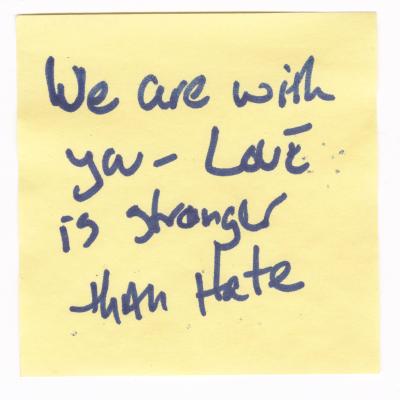 We are with
you - LOVE
is stronger
than Hate